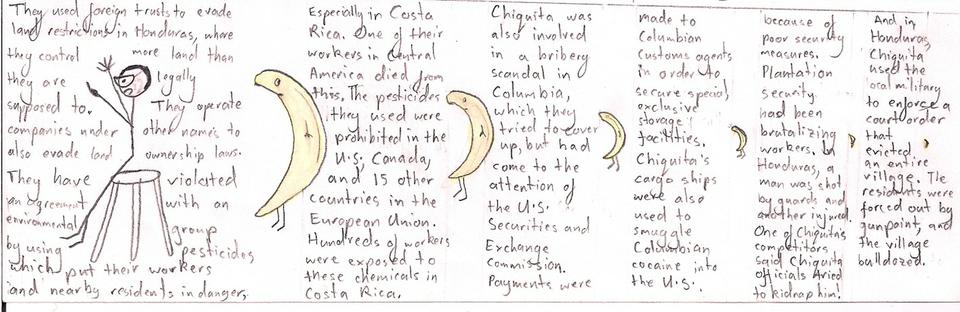 They used foreign trusts to evade
land restrictions in Honduras, where
they control more land than
they are legally
supposed to. They operate
companies under other names to
also evade land ownership laws.
They have violated
an agreement with an
environmental group
by using pesticides
which put their workers
and nearby residents in danger,
Especially in Costa
Rica. One of their
workers in Central
America died from
this. The pesticides
they used were
prohibited in the
U.S., Canada,
and 15 other
countries in the
European Union.
Hundreds of workers
were exposed to
these chemicals in
Costa Rica.
Chiquita was
also involved
in a bribery
scandal in
Columbia,
which they
tried to cover
up, but had
come to the
attention of
the U.S.
Securities and
Exchange
Commission.
Payments were
made to
Columbian
Customs agents
in order to
secure special,
exclusive
storage
facilities.
Chiquita's
cargo ships
were also
used to
smuggle
Columbian
cocaine into
the U.S.
because of
poor security
measures.
Plantation
security
had been
brutalizing
workers. In
Honduras, a
man was shot
by guards and
another injured.
One of Chiquita's
competitors
said Chiquita
officials tried
to kidnap him!
And in
Honduras,
Chiquita
used the
local military
to enforse a
court order
that
evicted
an entire
village. The
residents were
forced out by
gunpoint, and
the village
bulldozed.